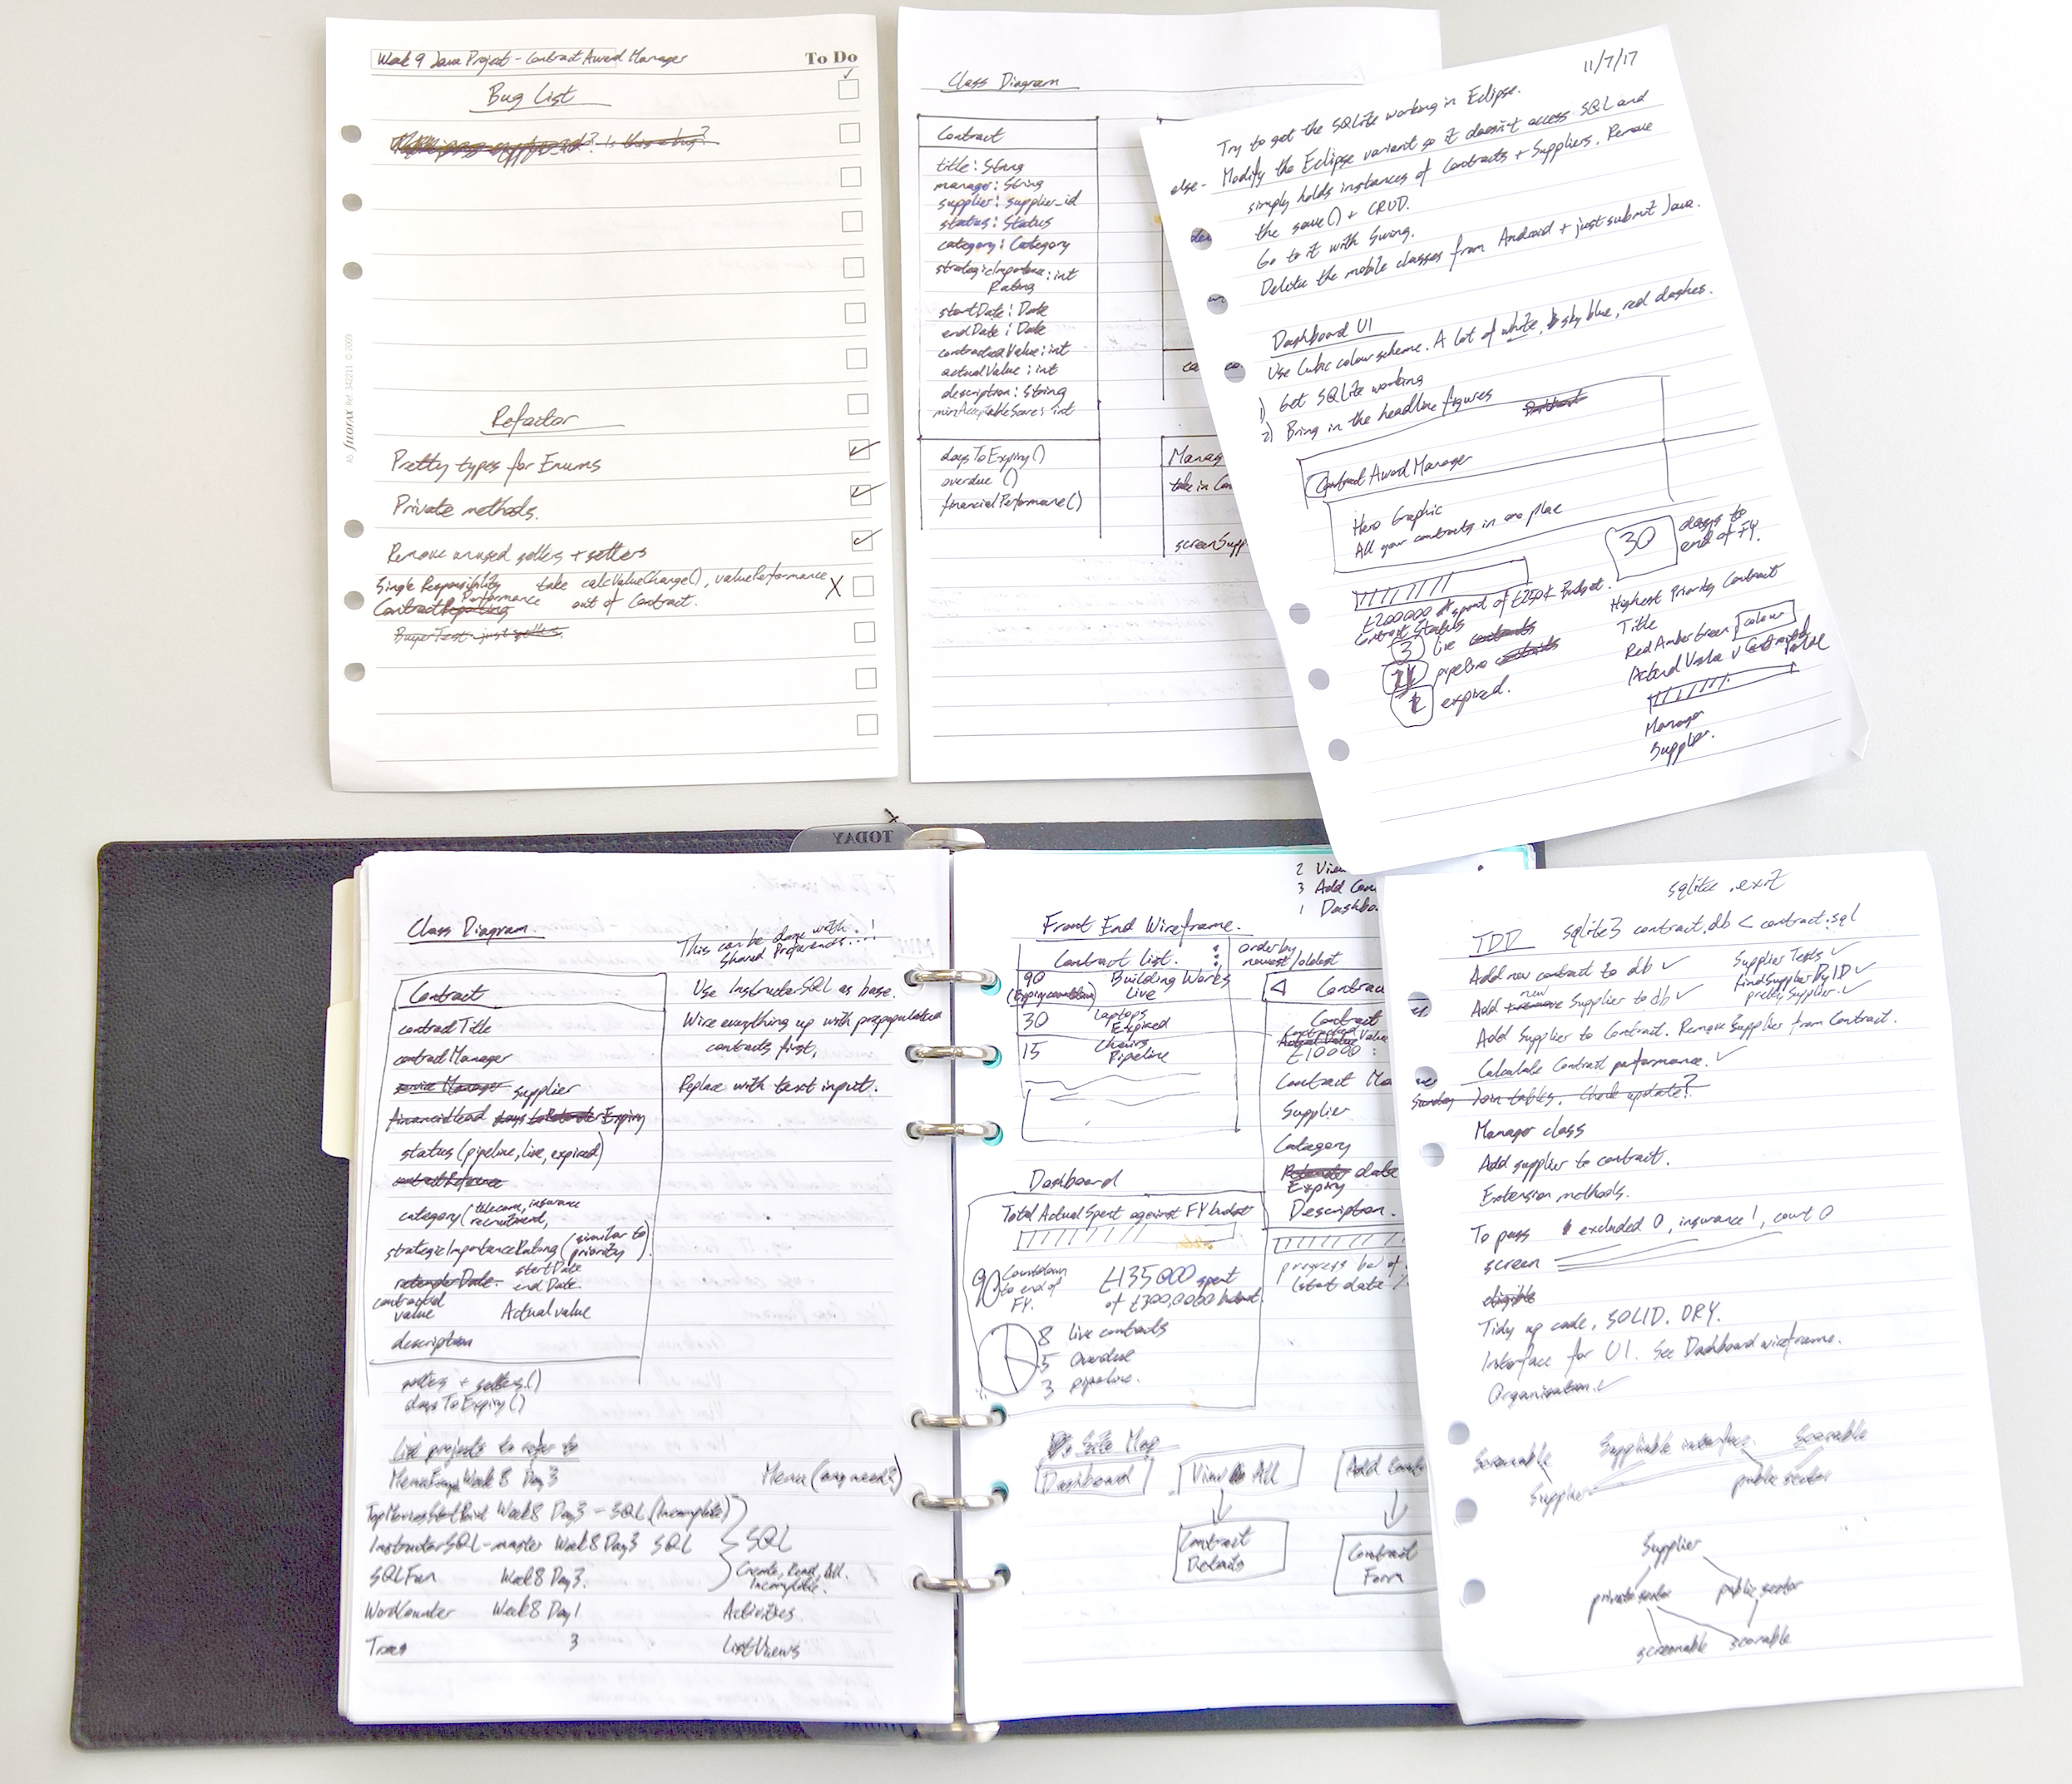 Week 9 Java Project - Contract Award Manager
To Do
Bug List
? Is this a bug?
Refactor
Pretty types for Enums
Private methods.
Remove unused getters + setters
Single Responsibility take calcValueChange(), valuePerformance X
Contract Reporting Performance out of Contract.
BuyerTest - just getters.
A5 filofax Ref. 342211 © 2009
Class Diagram
Contract
title: String
manager: String
supplier: supplier_id
status: Status
category: Category
strategicImportance: int
Rating
startDate: Date
endDate: Date
contractedValue: int
actualValue: int
description: String
minAcceptableScore: int
daysToExpiry()
overdue ()
financialPerformance()
ca
Manag
take in Con
screenSupp
11/7/17
Try to get the SQLite working in Eclipse.
else - Modify the Eclipse variant so it doesn't access SQL and
simply holds instances of Contracts + Suppliers. Remove
the save() + CRUD.
Go to it with Swing.
Delete the mobile classes from Android + just submit Java.
Dashboard UI
Use Cubic colour scheme. A lot of white, sky blue, red dashes.
1) Get SQLite working
2) Bring in the headline figures
Contract Award Manager
Hero Graphic
All your contracts in one place
30 days to
end of FY.
£200000 spent of £250k Budget.
Contract Status
3 live contracts
pipeline contracts
expired.
Highest Priority Contract
Title
Red Amber Green colour
Actual Value v Contracted
Value
Manager
Supplier.
TODAY
Class Diagram
This can be done with
Shared Preferences...!
Contract
contractTitle
contractManager
service Manager supplier
financial lead days to Retender Expiry
status (pipeline, live, expired)
contractReference
category (telecoms, insurance
recruitment,
strategicImportanceRating (similar to
priority)
retenderDate. startDate
endDate
contracted
value Actual value
description
getters + setters()
daysToExpiry()
Use InstructorSQL as base.
Wire everything up with prepopulated
contracts first.
Replace with text input.
List projects to refer to
Week 8 Day 3 Menu (any need?)
Week 8 Day 3 - SQL (Incomplete)
InstructorSQL-master Week 8 Day 3 SQL
SQL
SQLFun Week 8 Day 3.
Create, Read, All.
Incomplete.
WordCounter Week 8 Day 1 Activities
3 ListViews
2 View
3 Add Con
1 Dashbo
Front End Wireframe.
Contract List.
order by
newest/oldest
90 Building Works
(Expiry countdown) Live
30 Laptops
Expired
15 Chairs
Pipeline
Contrac
Contract
Contracted
Actual Value Value
£10000
Contract Ma
Supplier
Category
Retender date
Expiry
Description.
progress bar of
(start date
Dashboard
Total Actual Spent against FY budget
90 Countdown
to end of
FY.
£135000 spent
of £300,0000 budget.
8 live contracts
5 Overdue
3 pipeline.
Site Map
Dashboard
View All
Add Contr
Contract
Details
Contract
Form
sqlite .exit
TDD sqlite3 contract.db < contract.sql
Add new contract to db ✓
Supplier Tests ✓
Add remove new Supplier to db ✓
findSupplierByID ✓
prettySupplier. ✓
Add Supplier to Contract. Remove Supplier from Contract.
Calculate Contract performance. ✓
Sunday Join tables. Check update?
Manager class
Add supplier to contract.
Extension methods.
To pass excluded 0, insurance 1, count 0
screen
eligible
Tidy up code, SOLID. DRY.
Interface for UI. See Dashboard wireframe.
Organisation. ✓
Screenable
Suppliable interface.
Scorable
Supplier
public sector
Supplier
private sector
public sector
screenable
scorable